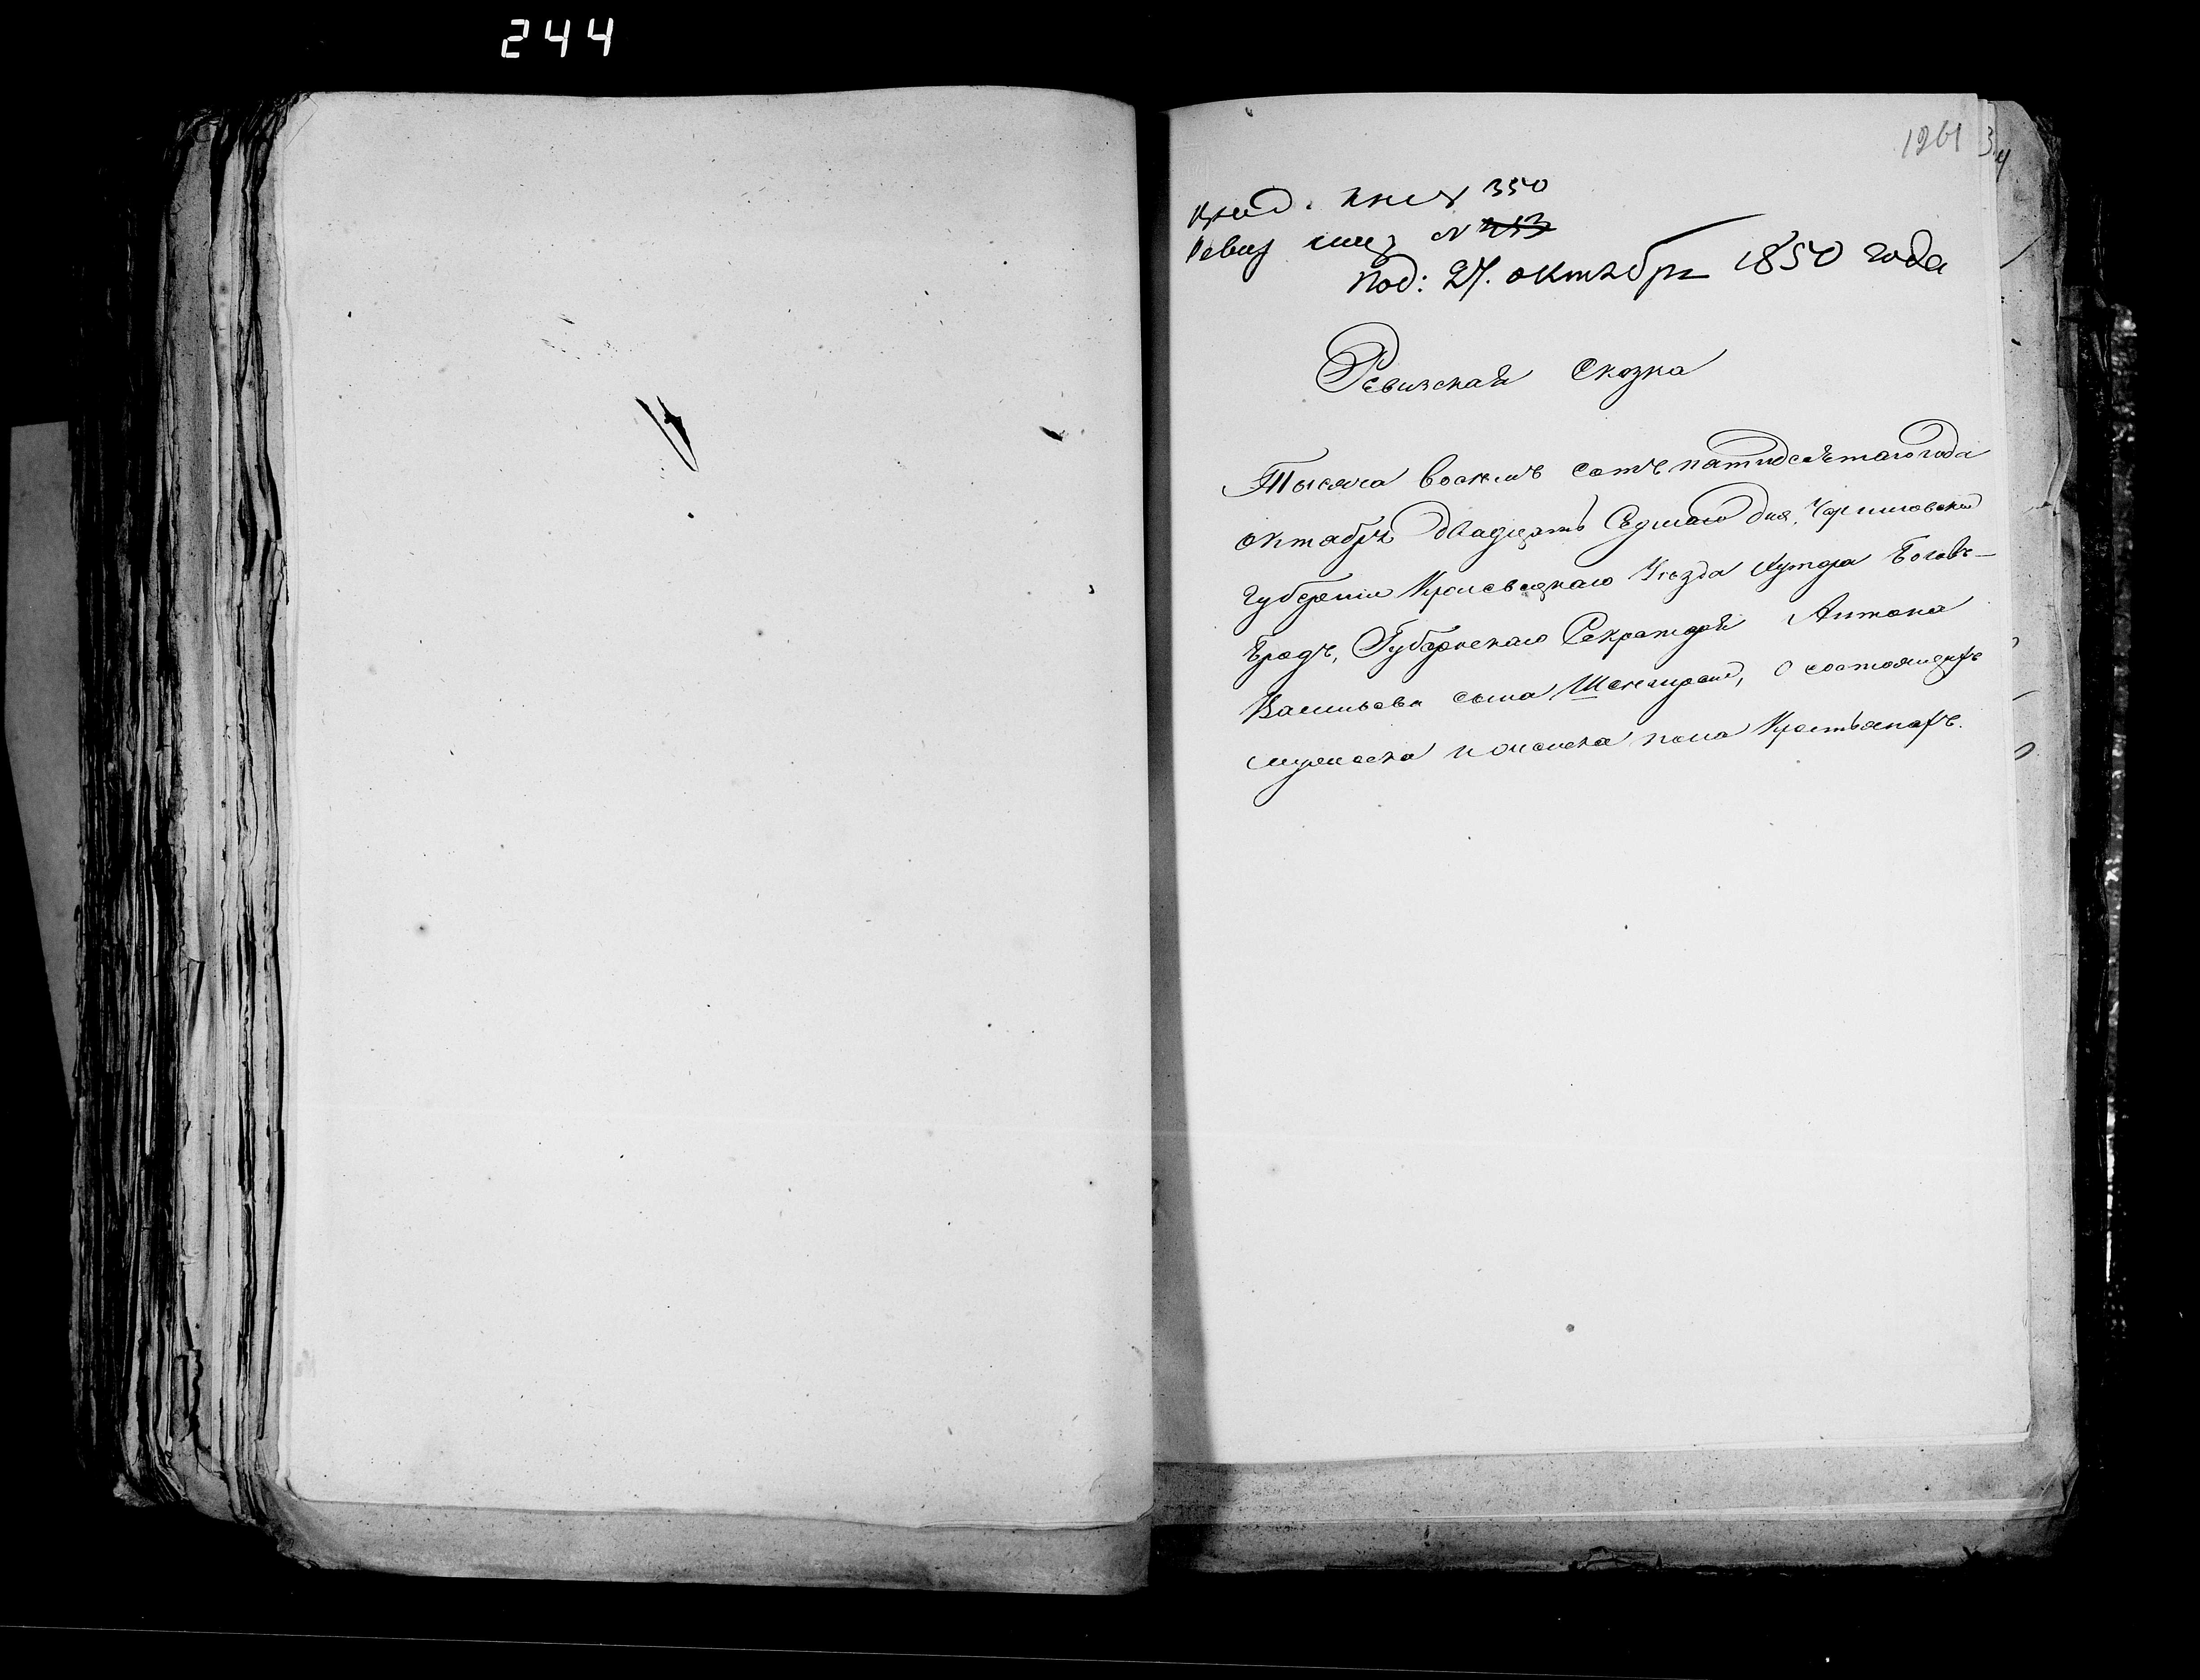 244
1261
350
Ревиз №
под: 27. октября 1850 года
Ревизская Сказка
Тысяча восемъ сотъ пятидесятаго года
октября двадцать Седмаго дня, Черниговской
Губернiи Кролевецкаго Уезда Хутора
Губернскаго Секретаря Антона
Васильева сына о состоящихъ
мужеска и женска пола Крестьянахъ.